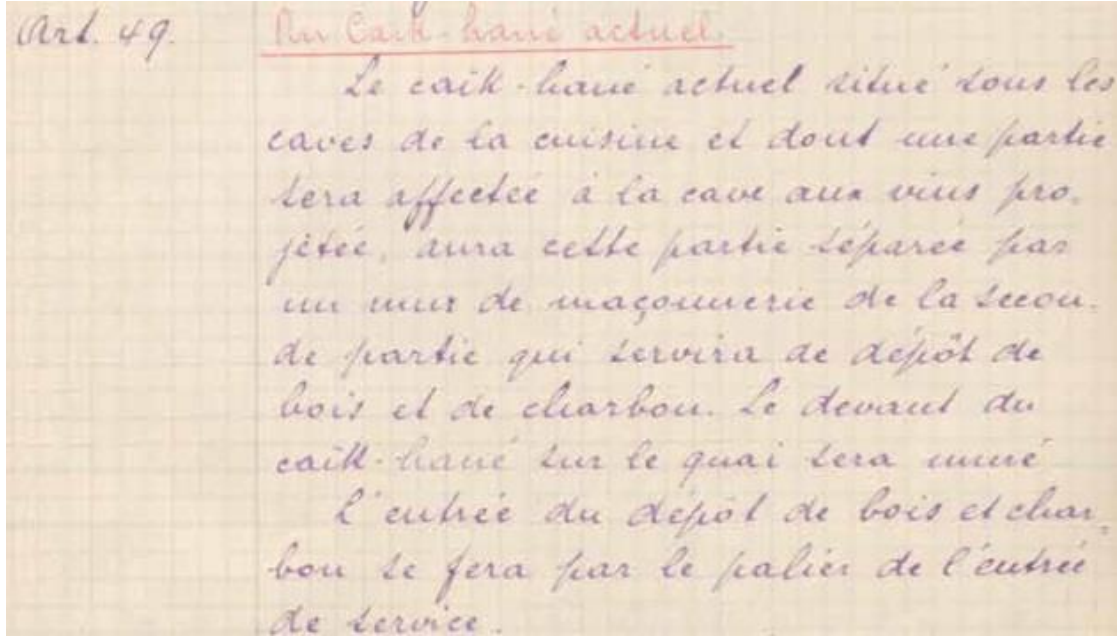 Art. 49. Du Caïk-hané actuel.
Le caïk-hané actuel situé sous les
caves de la cuisine et dont une partie
sera affectée à la cave aux vins pro-
jetée, aura cette partie séparée par
un mur de maçonnerie de la secon-
de partie qui servira de dépôt de
bois et de charbon. Le devant du
caïk-hané sur le quai sera muré
L'entrée du dépôt de bois et char-
bon se fera par le palier de l'entrée
de service.